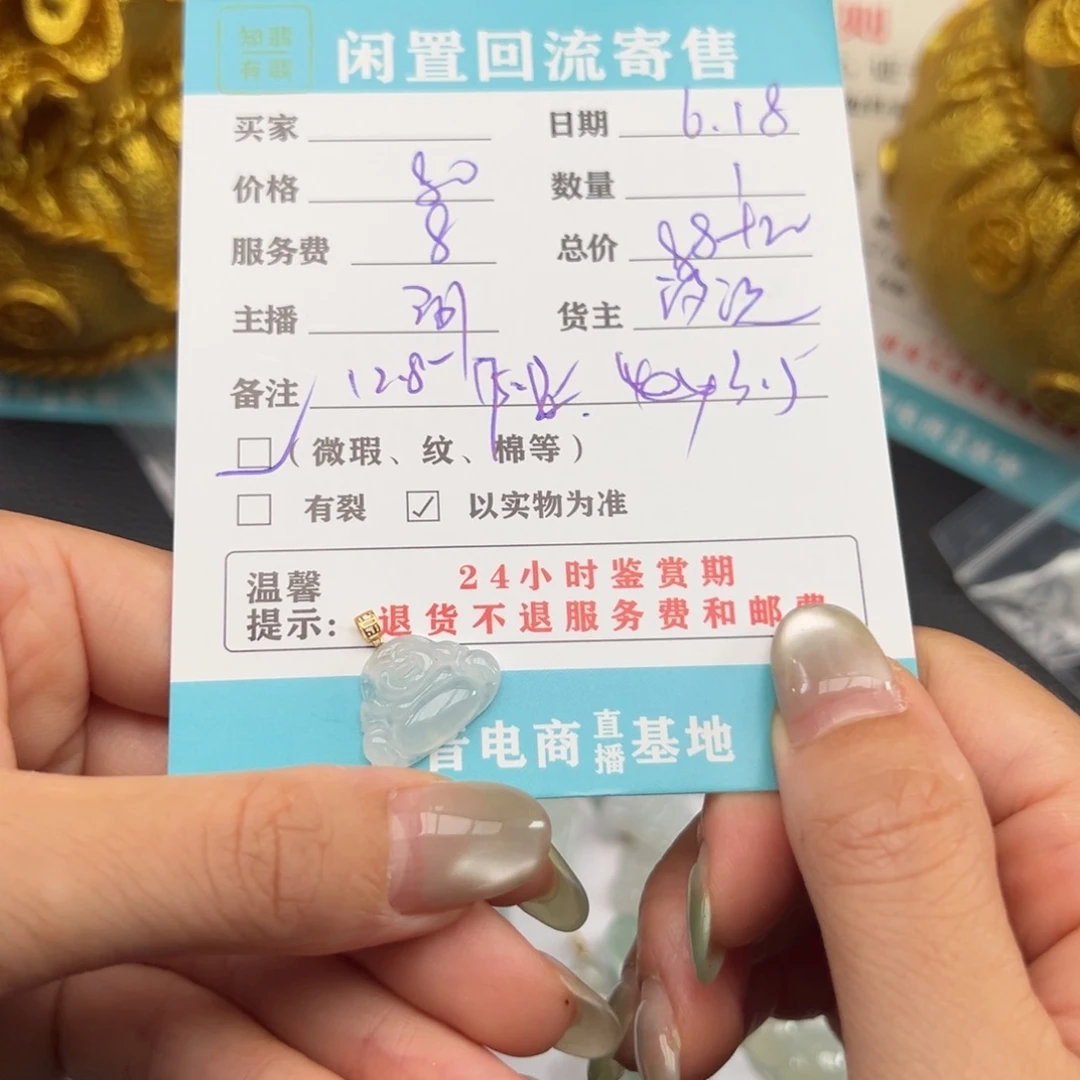 知翡
有翡
闲置回流寄售
买家 日期 6.18
价格 80 数量 1
服务费 8 总价 88+12
主播 货主
备注 12.8
(微瑕、纹、棉等)
有裂 ☑ 以实物为准
温馨 24小时鉴赏期
提示: 退货不退服务费和邮费
音电商直播基地